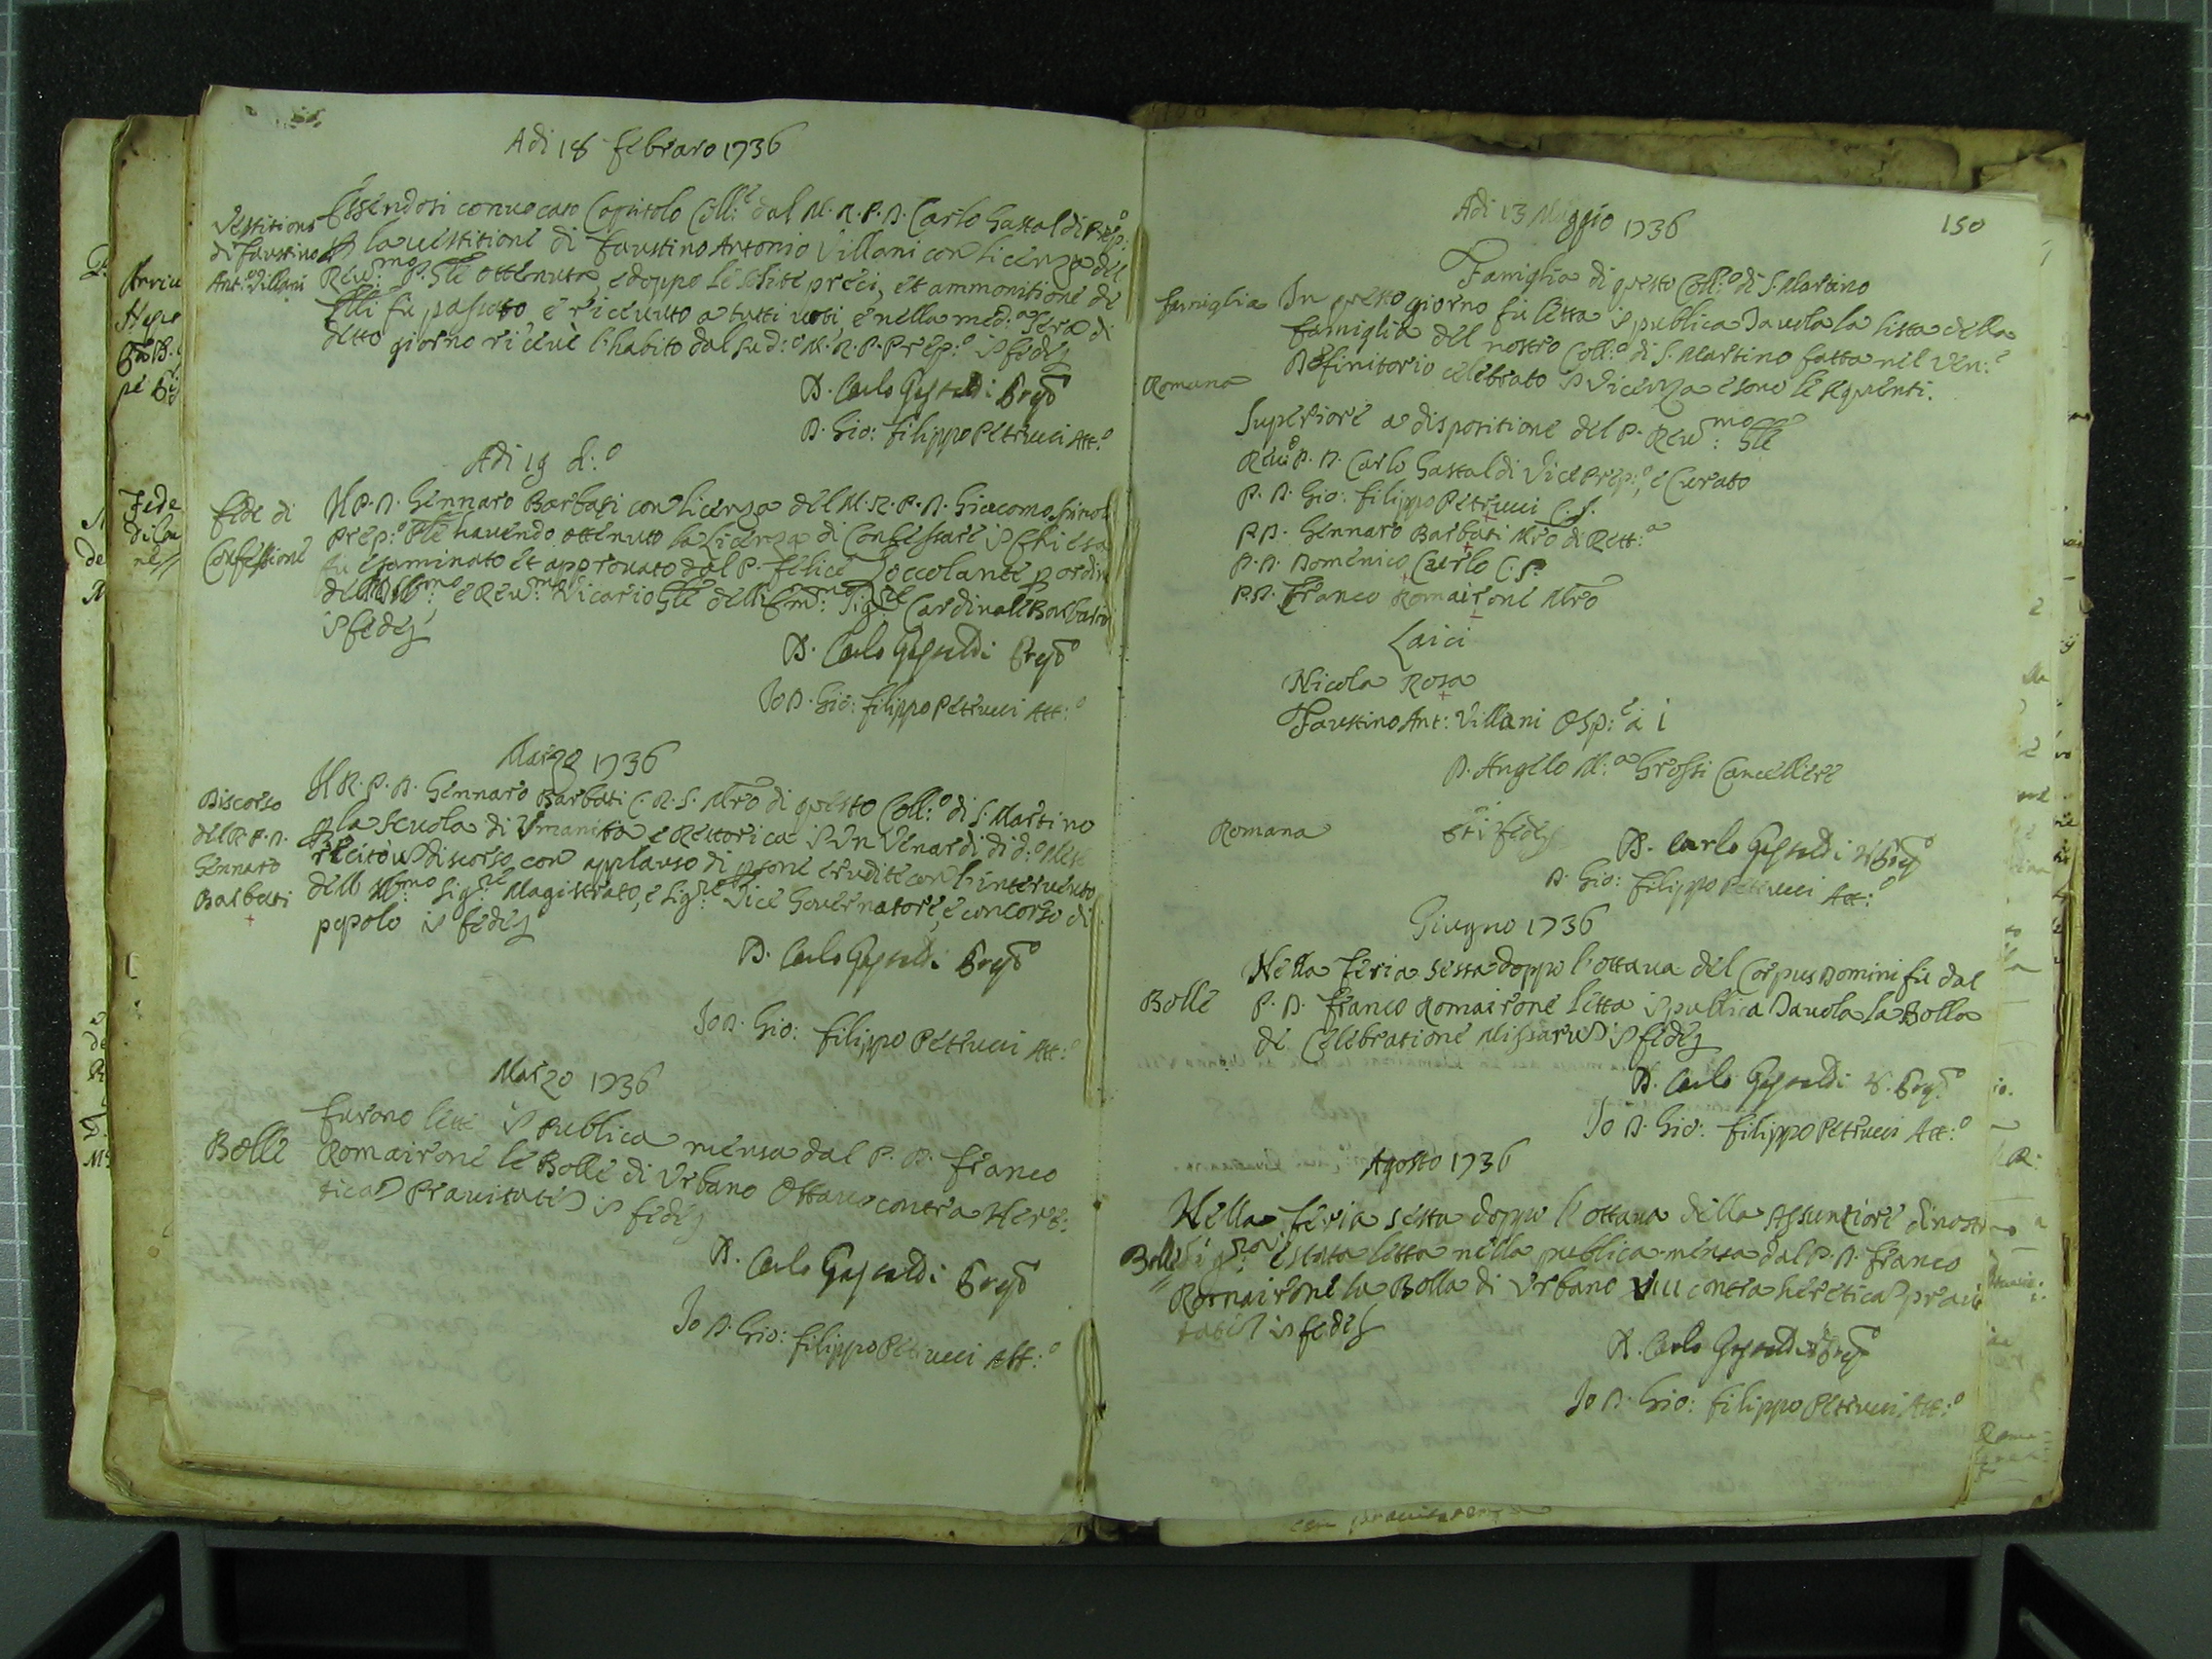 Adi 18 febraro 1736
Vestitione
di Faustino
Ant:o Villani
Essendosi convocato Capitolo Coll:e dal M. R. P. D. Carlo Gastaldi Prep:o
p la vestitione di Faustino Antonio Villani con licenza del
Rev:mo P. Gle ottenuta, e doppo le solite preci, et ammonitione de
fu e ricevuto a tutti voti, e nella med:a sera di
detto giorno ricevè l'habito dal sud:o M. R. P. Prep:o i fede
D. Carlo Gastaldi Prepo
D. Gio: Filippo Petrucci Att:o
Adi 19 d:o
Fede di
Confessione
Il P. D. Gennaro Barbati con licenza del M. R. P. D. Giacomo
Prep:o Ple havendo ottenuto la licenza di Confessare i Chiesa
fu esaminato et approvato dal P. Felice Zoccolante p ordine
dell Ill:mo e Rev:mo Vicario Gle dell Em:mo Sig:re Cardinale Barbarini
i fede
D. Carlo Gastaldi Prepo
Io D. Gio: Filippo Petrucci Att:o
Marzo 1736
Discorso
del R. P. D.
Gennaro
Barbati
Il R. P. D. Gennaro Barbati C. R. S. Mro di questo Coll:o di S. Martino
p la scuola di Umanità e Rettorica i un Venardi di d:o Mese
recitò u discorso con applauso di psone erudite con l'intervento
dell Ill:mo Sig:re Magistrato, e Sig:re Vice Governatore, e concorso di
popolo i fede
D. Carlo Gastaldi Prepo
Io D. Gio: Filippo Petrucci Att:o
Marzo 1736
Bolle
Furono lette i publica mensa dal P. D. Franco
Romairone le Bolle di Urbano Ottavo contra Here:
tica Pravitati i fede
D. Carlo Gastaldi Prepo
Io D. Gio: Filippo Petrucci Att:o
150
Adi 13 Maggio 1736
Famiglia di questo Coll:o di S. Martino
famiglia
In questo giorno fu letta i publica Tavola la lista della
famiglia del nostro Coll:o di S. Martino fatta nel Ven:e
Definitorio celebrato i Vicenza e sono le seguenti.
Romana
Superiore a dispositione del P. Rev:mo Gle
P. D. Carlo Gastaldi Vice Prep:o, e Curato
P. D. Gio: Filippo Petrucci C. S.
P. D. Gennaro Barbati Mro di Rett:a
P. D. Domenico Caerlo C. S.
P. D. Franco Romairone Mro
Laici
Nicola Rosa
Faustino Ant: Villani Osp:e à i
D. Angelo M:a Grossi Cancelliere
Romana
et i fede
D. Carlo Gastaldi V Prepo
D. Gio: Filippo Petrucci Att:o
Giugno 1736
Bolle
Nella feria sesta doppo l'ottava del Corpus Domini fu dal
P. D. Franco Romairone letta i publica Tavola la Bolla
de Celebratione Missaru i fede
D. Carlo Gastaldi V. Prep:o
Io D. Gio: Filippo Petrucci Att:o
Agosto 1736
Bolle
Nella feria sesta doppo l'ottava della Assunzione di nostra
Sig:ra è stata letta nella publica mensa dal P. D. Franco
Romairone la Bolla di Urbano VIII contra heretica pravi
tati i fede
D. Carlo Gastaldi V Prepo
Io D. Gio: Filippo Petrucci Att:o